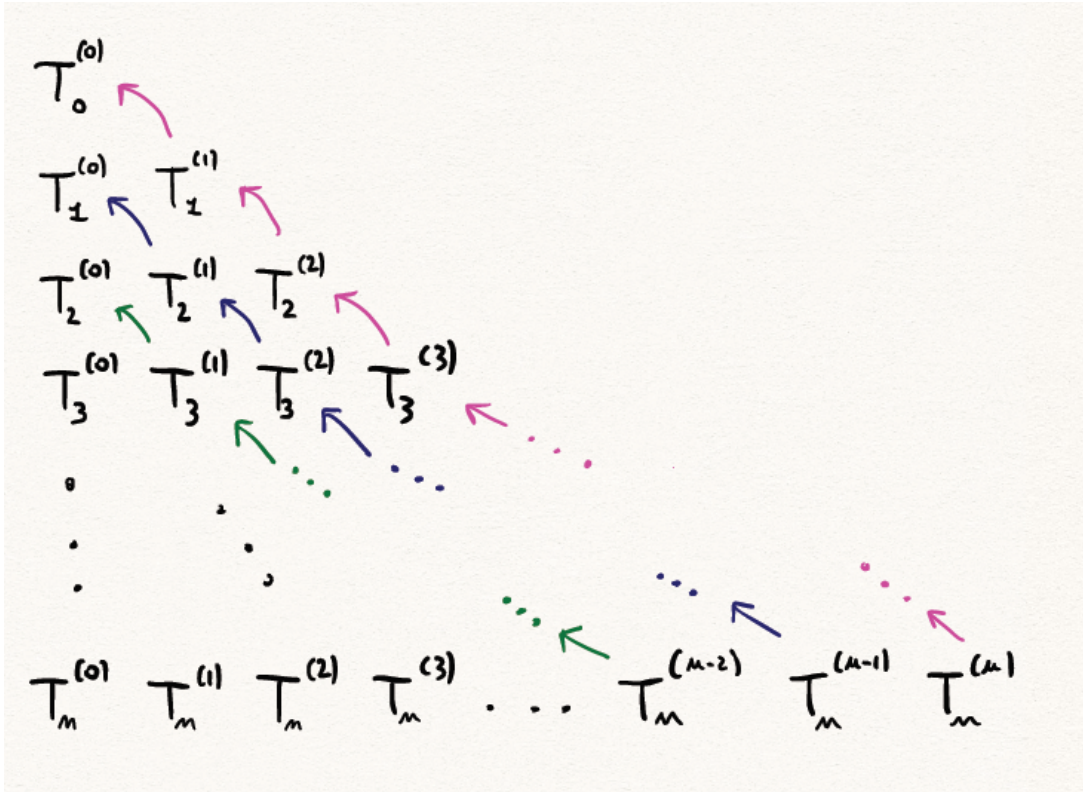 T₀⁽⁰⁾
T₁⁽⁰⁾ T₁⁽¹⁾
T₂⁽⁰⁾ T₂⁽¹⁾ T₂⁽²⁾
T₃⁽⁰⁾ T₃⁽¹⁾ T₃⁽²⁾ T₃⁽³⁾
Tₙ⁽⁰⁾ Tₙ⁽¹⁾ Tₙ⁽²⁾ Tₙ⁽³⁾ . . . Tₙ⁽ⁿ⁻²⁾ Tₙ⁽ⁿ⁻¹⁾ Tₙ⁽ⁿ⁾